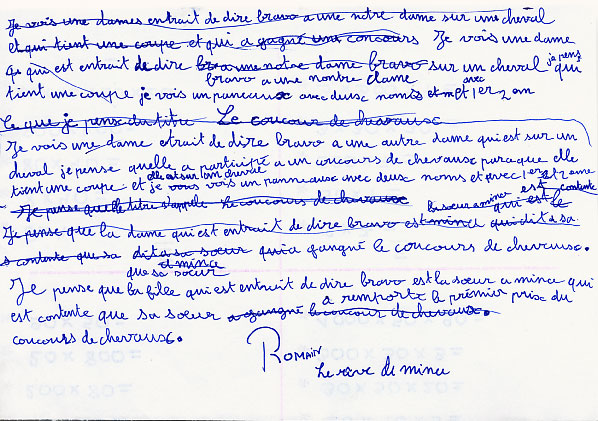 Je vois une dames entrait de dire bravo a une notre dame sur une cheval
et qui tient une coupe et qui a gagné une concours Je vois une dame
qui est entrait de dire bravo a une notre dame bravo sur un cheval je pens qui
bravo a une nontre dame
tient une coupe je vois un paneaux avec deusc nomsis et met 1 er 2 em
avec
Ce que je pense du titre Le concour de chevausc
Je vois une dame etrait de dire bravo a une autre dame qui est sur un
cheval je pense quelle a participé a un corcours de chevausc parce que elle
elle est sur un chevale
tient une coupe et je vous vois un panneausc avec deusc noms et avec 1er et 2 eme
Je pense que le titre s'appelle le concours de chevausc la sœur a mince qui est le
est contente
Je pense que la dame qui est entrait de dire bravo est mince qui dit a sa
s contente que sa dit a sa sœur qui a gangné le concours de cheveausc.
et mince
que sa sœur
Je pense que la filee qui est entrait de dire bravo est la sœur a mince qui
est contente que sa sœur a gangné le concour de chevausc.
a remporté le prémier prisc du
concours de chevausc.
ROMAIN
Le rêve de mince